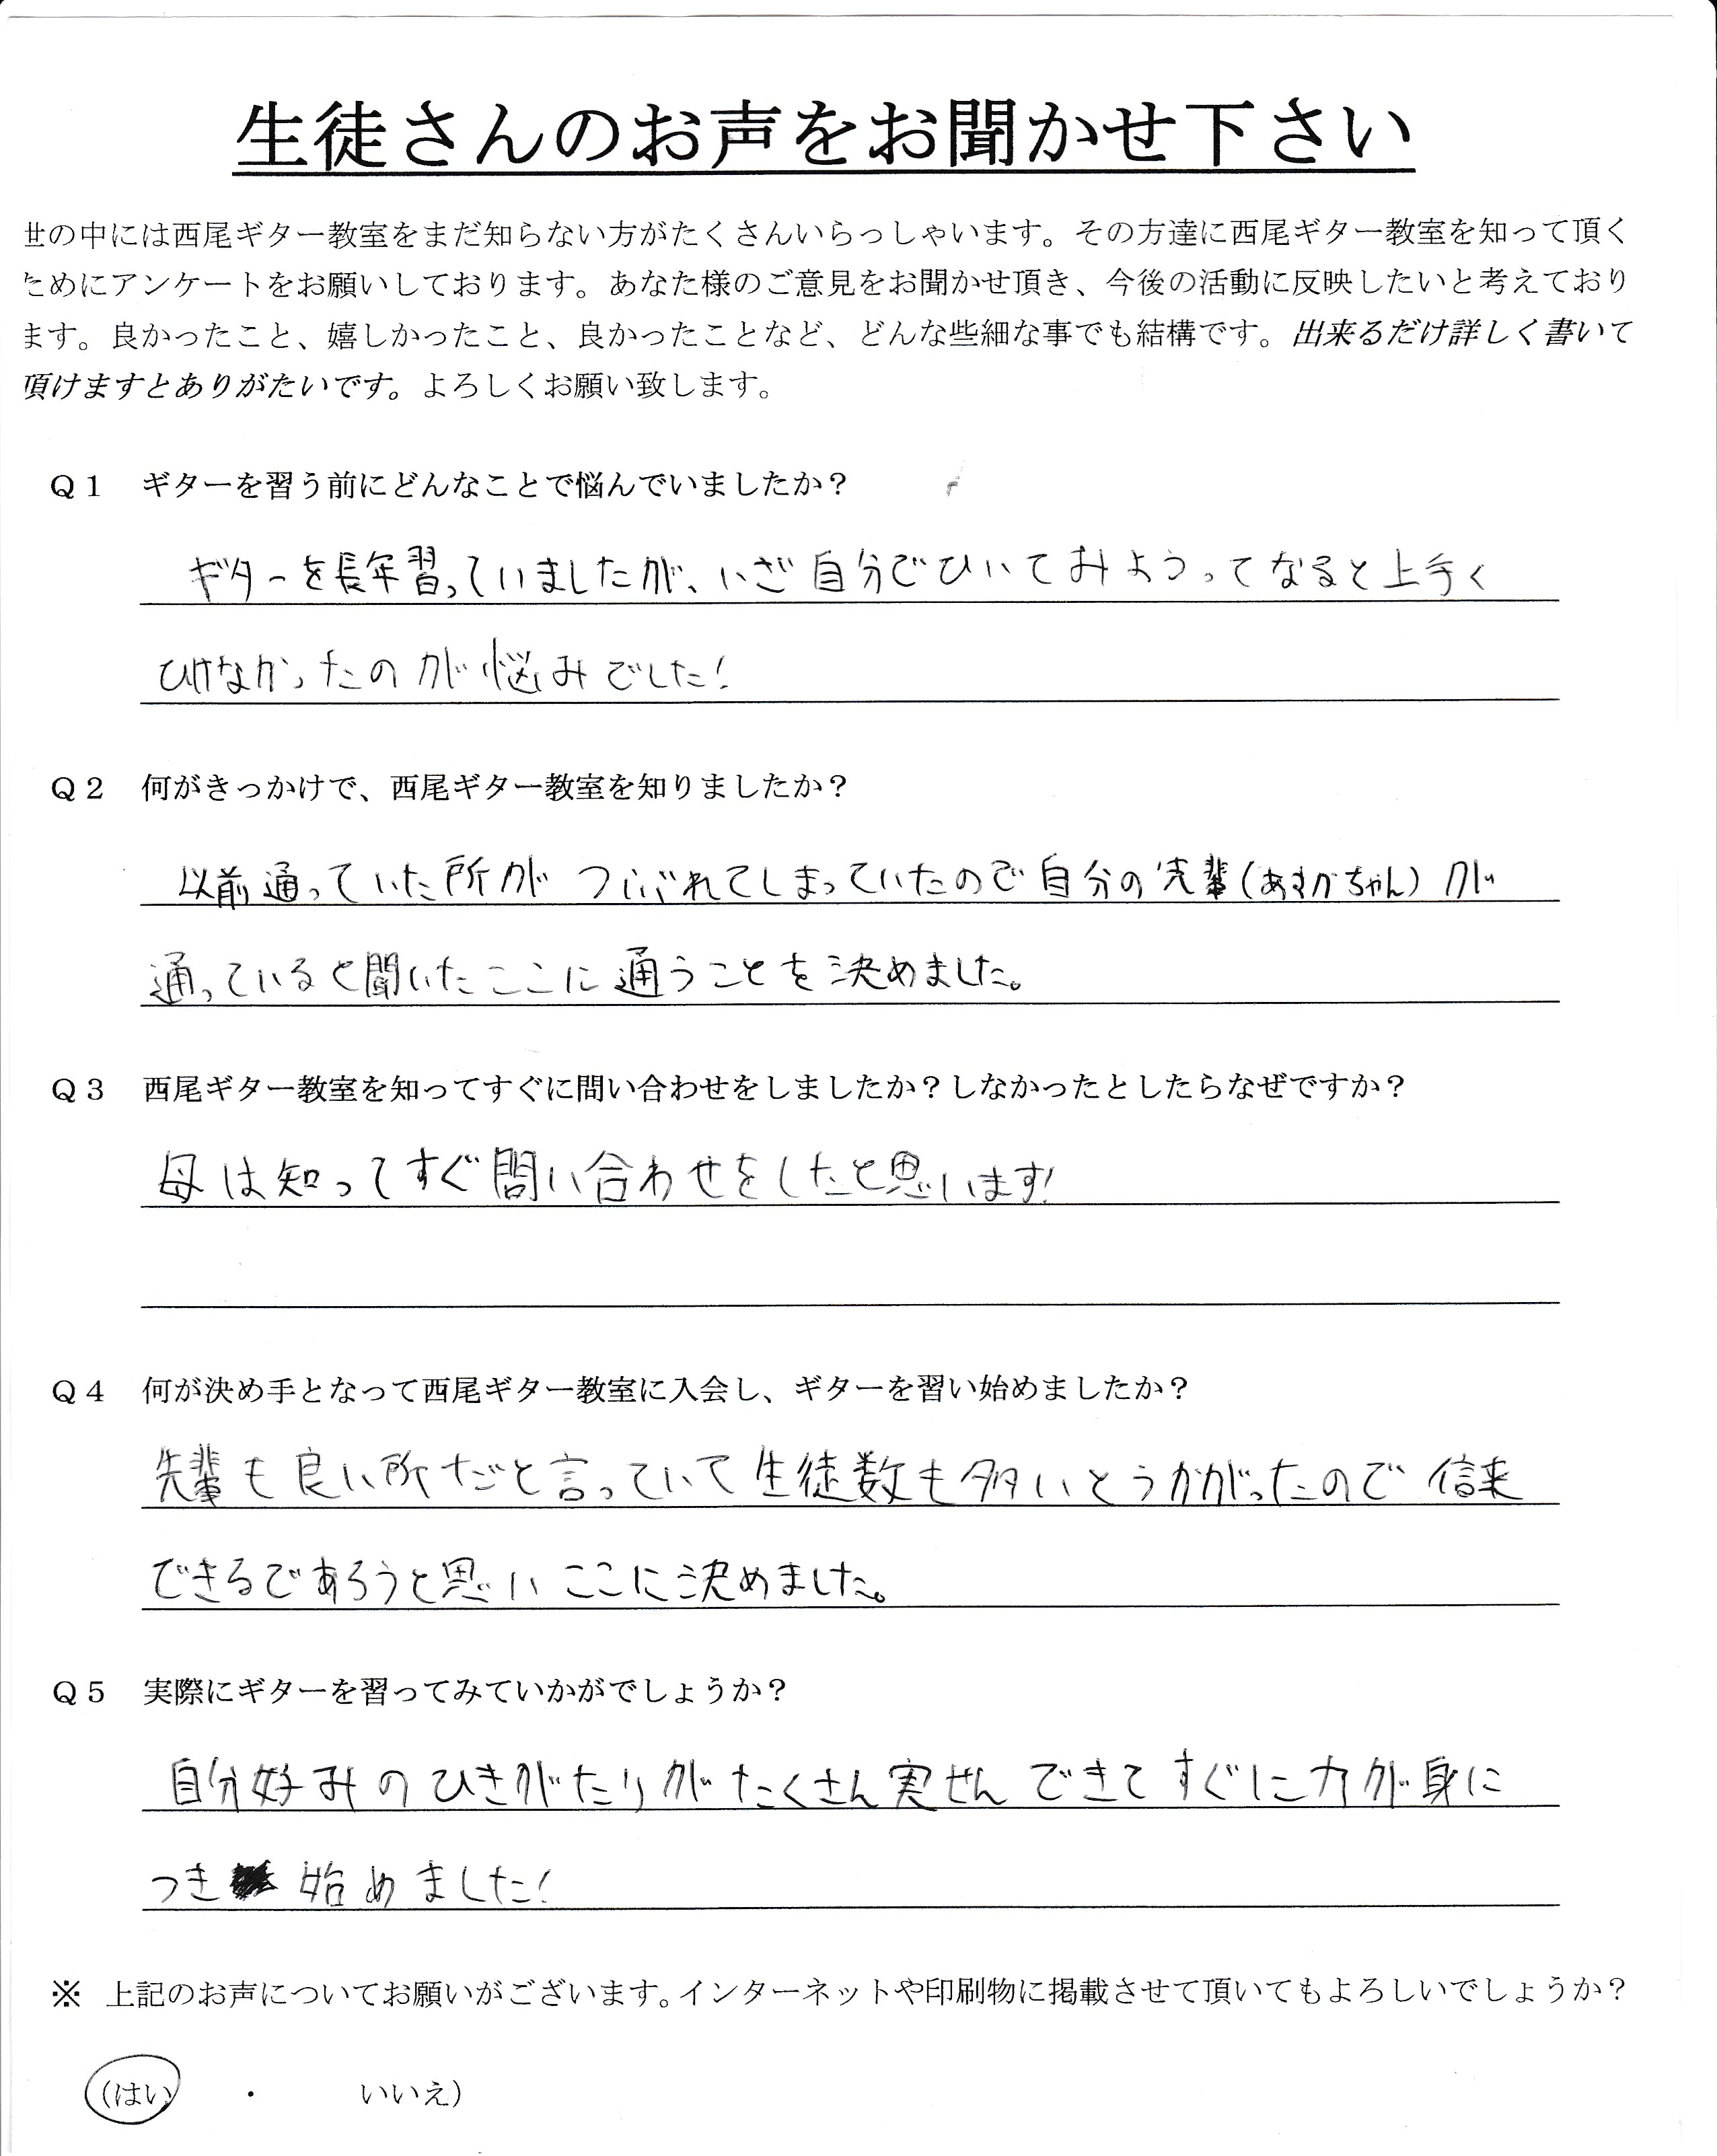 生徒さんのお声をお聞かせ下さい
世の中には西尾ギター教室をまだ知らない方がたくさんいらっしゃいます。その方達に西尾ギター教室を知って頂く
ためにアンケートをお願いしております。あなた様のご意見をお聞かせ頂き、今後の活動に反映したいと考えており
ます。良かったこと、嬉しかったこと、良かったことなど、どんな些細な事でも結構です。出来るだけ詳しく書いて
頂けますとありがたいです。よろしくお願い致します。
Q1 ギターを習う前にどんなことで悩んでいましたか？
ギターを長年習っていましたが、いざ自分でひいてみようってなると上手く
ひけなかったのが悩みでした!
Q2 何がきっかけで、西尾ギター教室を知りましたか？
以前通っていた所がつぶれてしまっていたので自分の先輩(あすかちゃん)が
通っていると聞いたここに通うことを決めました。
Q3 西尾ギター教室を知ってすぐに問い合わせをしましたか？しなかったとしたらなぜですか？
母は知ってすぐ問い合わせをしたと思います!
Q4 何が決め手となって西尾ギター教室に入会し、ギターを習い始めましたか？
先輩も良い所だと言っていて生徒数も多いとうかがったので信来
できるであろうと思いここに決めました。
Q5 実際にギターを習ってみていかがでしょうか？
自分好みのひきがたりがたくさん実せんできてすぐに力が身に
つき 始めました!
※ 上記のお声についてお願いがございます。インターネットや印刷物に掲載させて頂いてもよろしいでしょうか？
(はい ・ いいえ)